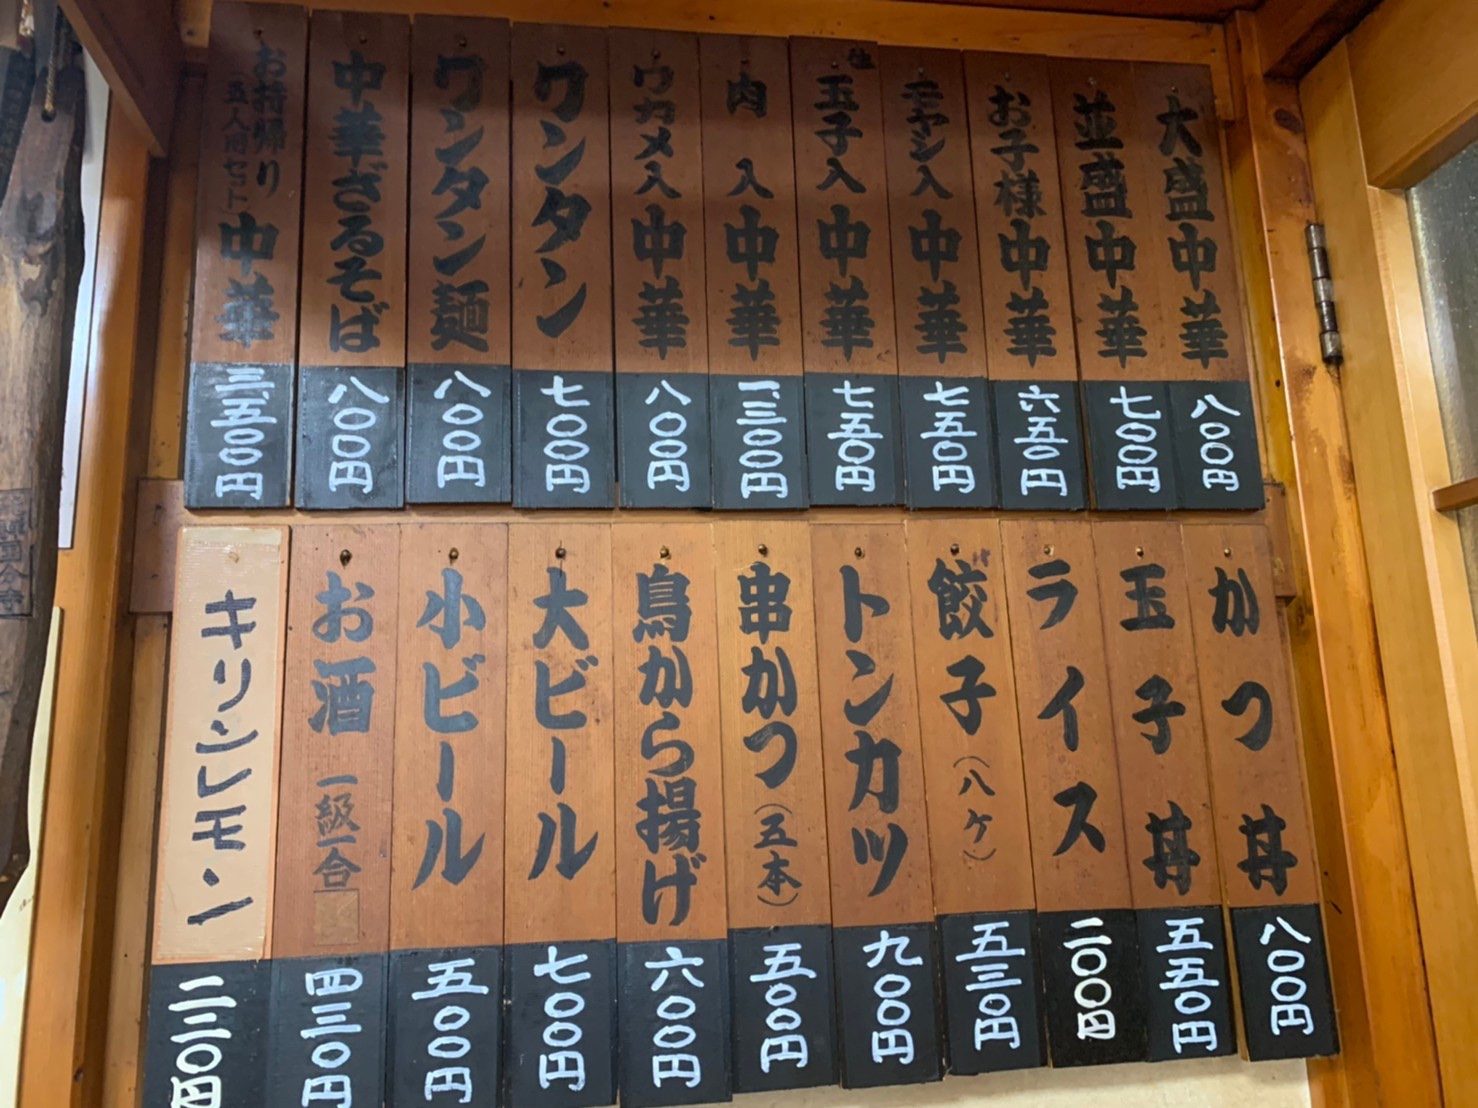 大盛中華 八〇〇円
並盛中華 七〇〇円
お子様中華 六五〇円
モヤシ入中華 七五〇円
玉子入中華 七五〇円
肉入中華 一、三〇〇円
ワカメ入中華 八〇〇円
ワンタン 七〇〇円
ワンタン麺 八〇〇円
中華ざるそば 八〇〇円
お持帰り 五人前セット 中華 三、五〇〇円
かつ丼 八〇〇円
玉子丼 五五〇円
ライス 二〇〇円
餃子(八ケ) 五三〇円
トンカツ 九〇〇円
串かつ(五本) 五〇〇円
鳥から揚げ 六〇〇円
大ビール 七〇〇円
小ビール 五〇〇円
お酒 一級一合 四三〇円
キリンレモン 二三〇円